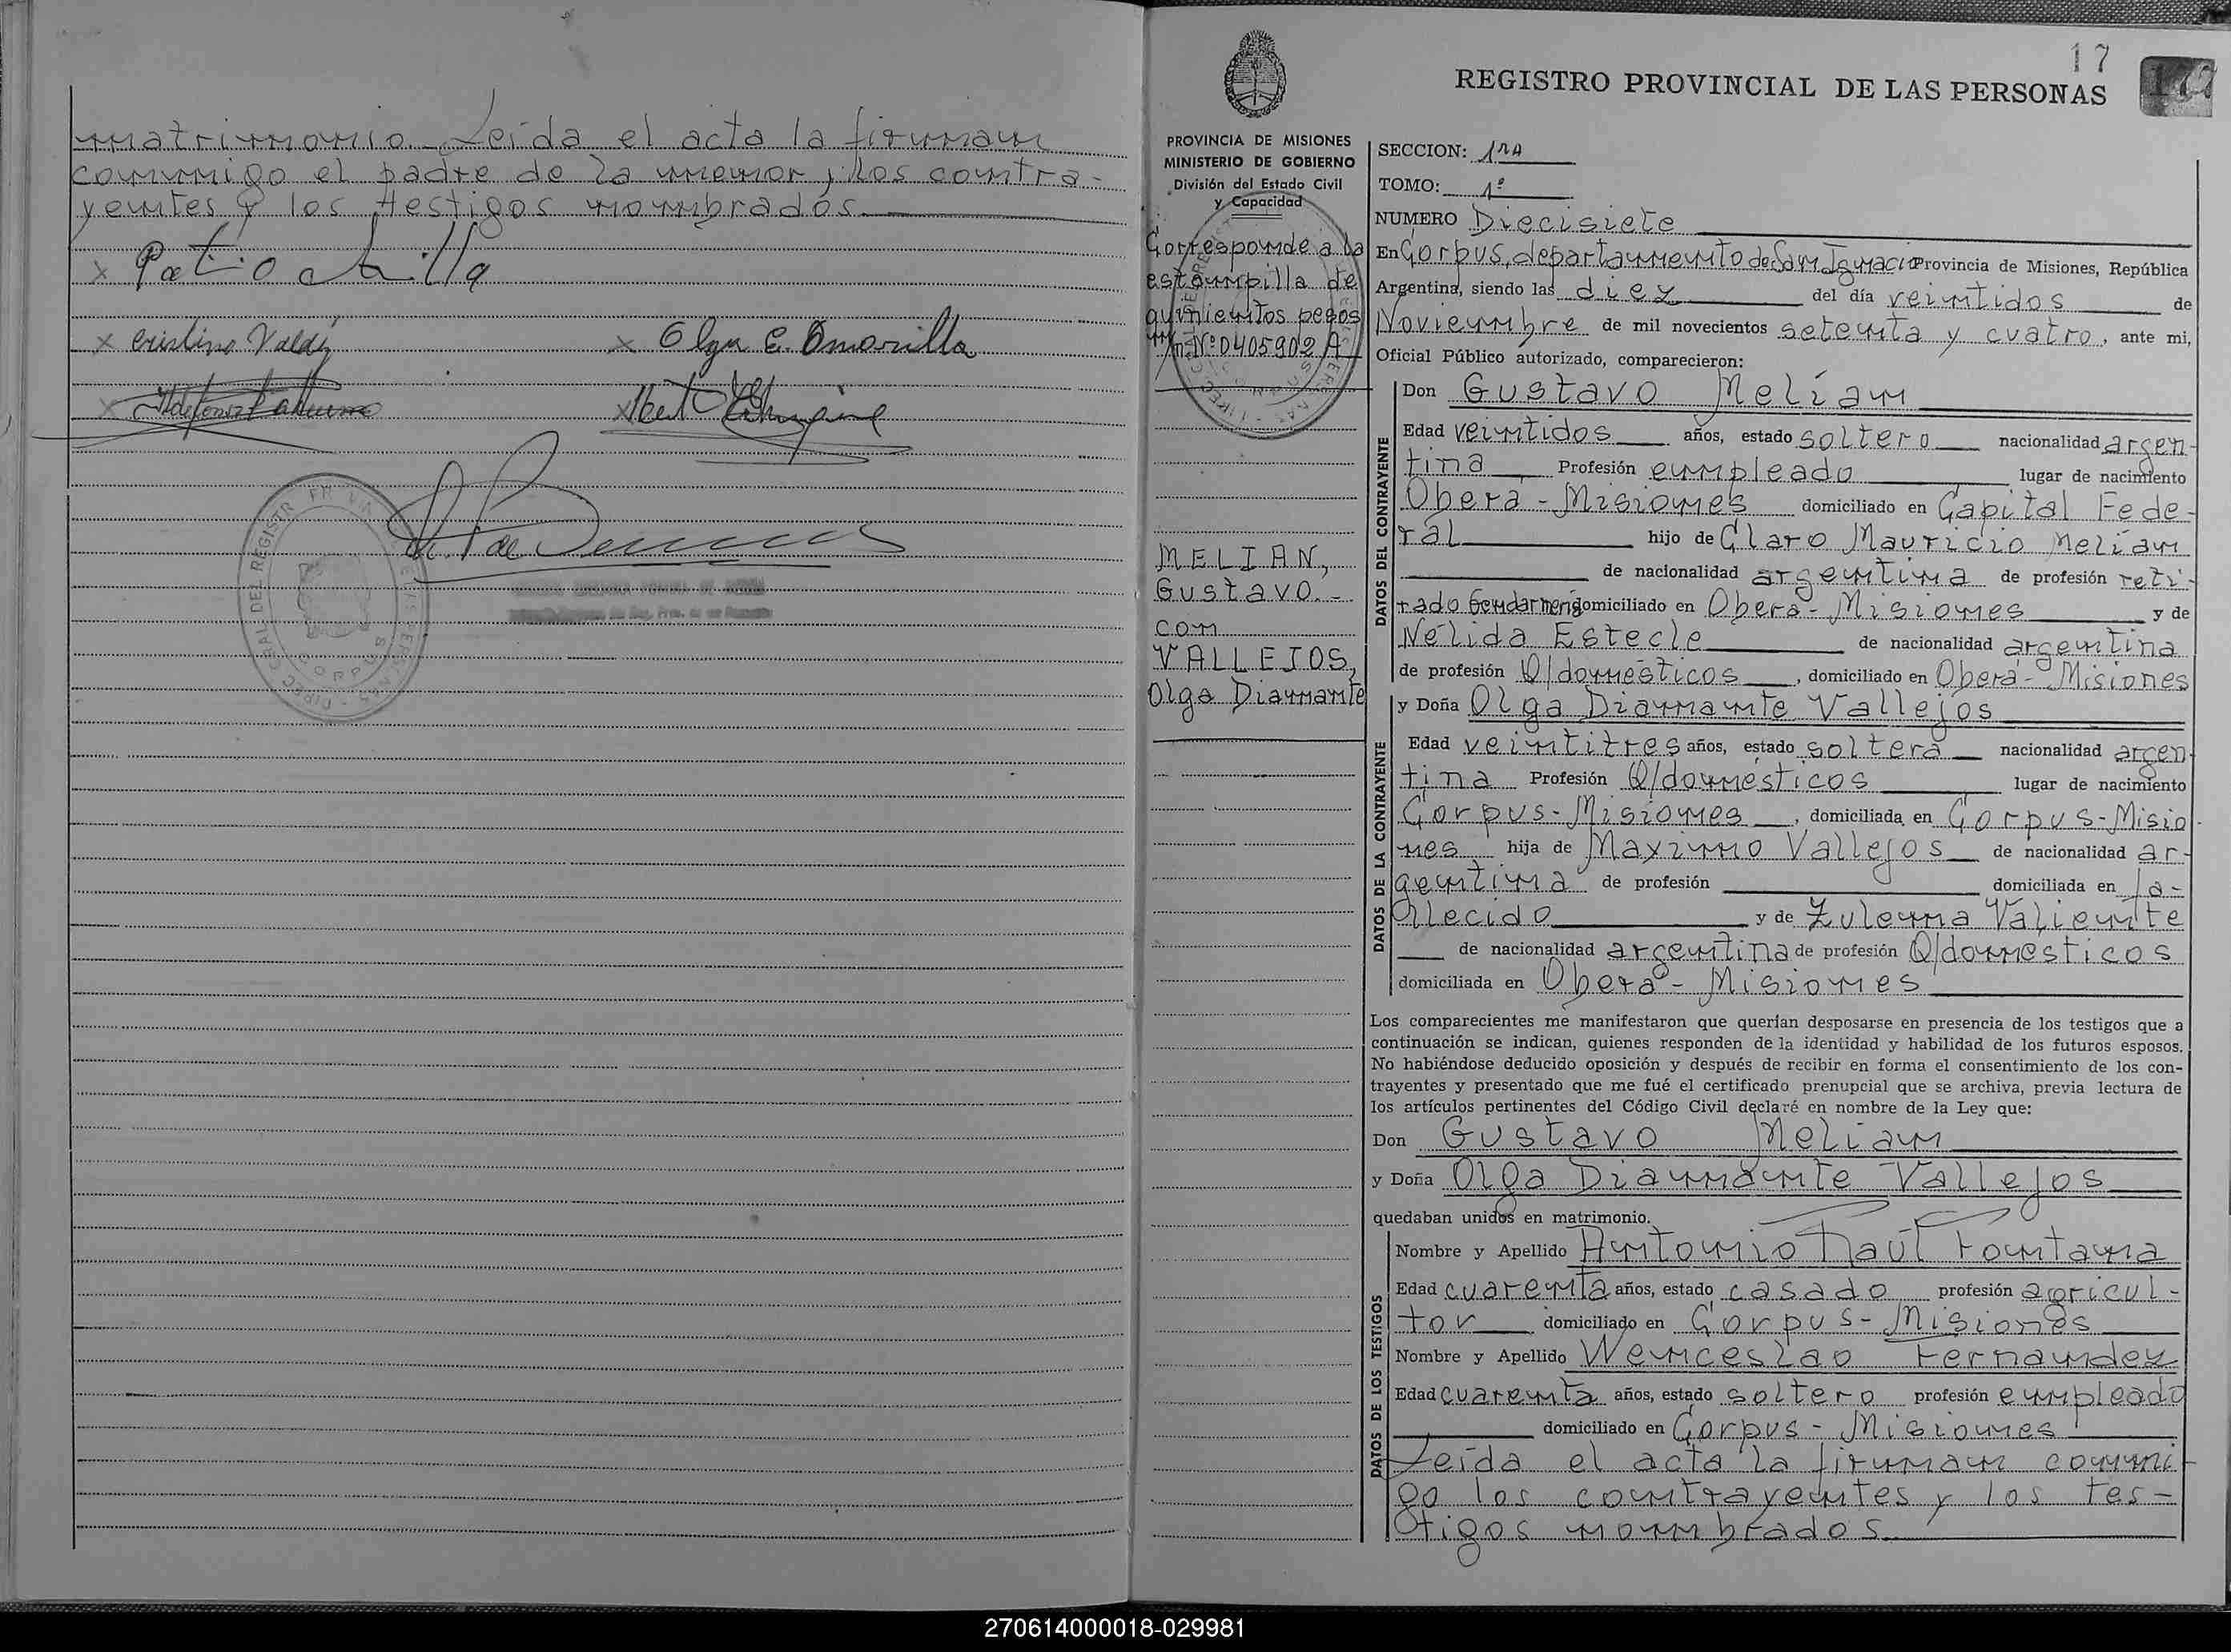 matrimonio.- Leída el acta la firman
conmigo el padre de la menor, los contra-
yentes y los testigos nombrados.
x
x Cristino Valdéz x Olga E. Amarilla
x x
17
REGISTRO PROVINCIAL DE LAS PERSONAS
PROVINCIA DE MISIONES
MINISTERIO DE GOBIERNO
División del Estado Civil
y Capacidad
Corresponde a la
estampilla de
quinientos pesos
m/n. Nº 0405902 A
MELIAN,
Gustavo.-
con
VALLEJOS,
Olga Diamante
SECCION: 1ra
TOMO: 1º
NUMERO Diecisiete
En Corpus, departamento de San Ignacio Provincia de Misiones, República
Argentina, siendo las diez del día veintidos de
Noviembre de mil novecientos setenta y cuatro, ante mi,
Oficial Público autorizado, comparecieron:
DATOS DEL CONTRAYENTE
Don Gustavo Melián
Edad veintidos años, estado soltero nacionalidad argen-
tina Profesión empleado lugar de nacimiento
Oberá - Misiones domiciliado en Capital Fede-
ral hijo de Claro Mauricio Melián
de nacionalidad argentina de profesión reti-
rado Gendarmería domiciliado en Oberá - Misiones y de
Nélida Estecle de nacionalidad argentina
de profesión Q/domésticos, domiciliado en Oberá - Misiones
DATOS DE LA CONTRAYENTE
y Doña Olga Diamante Vallejos
Edad veintitres años, estado soltera nacionalidad argen-
tina Profesión Q/domésticos lugar de nacimiento
Corpus - Misiones, domiciliada en Corpus - Misio-
nes hija de Maximo Vallejos de nacionalidad ar-
gentina de profesión domiciliada en fa-
llecido y de Zulema Valiente
de nacionalidad argentina de profesión Q/domesticos
domiciliada en Oberá - Misiones
Los comparecientes me manifestaron que querían desposarse en presencia de los testigos que a
continuación se indican, quienes responden de la identidad y habilidad de los futuros esposos.
No habiéndose deducido oposición y después de recibir en forma el consentimiento de los con-
trayentes y presentado que me fué el certificado prenupcial que se archiva, previa lectura de
los artículos pertinentes del Código Civil declaré en nombre de la Ley que:
Don Gustavo Melián
y Doña Olga Diamante Vallejos
quedaban unidos en matrimonio.
DATOS DE LOS TESTIGOS
Nombre y Apellido Antonio Raúl Fontana
Edad cuarenta años, estado casado profesión agricul-
tor domiciliado en Corpus - Misiones
Nombre y Apellido Wenceslao Fernandez
Edad cuarenta años, estado soltero profesión empleado
domiciliado en Corpus - Misiones
Leída el acta la firman conmi-
go los contrayentes y los tes-
tigos nombrados
270614000018-029981